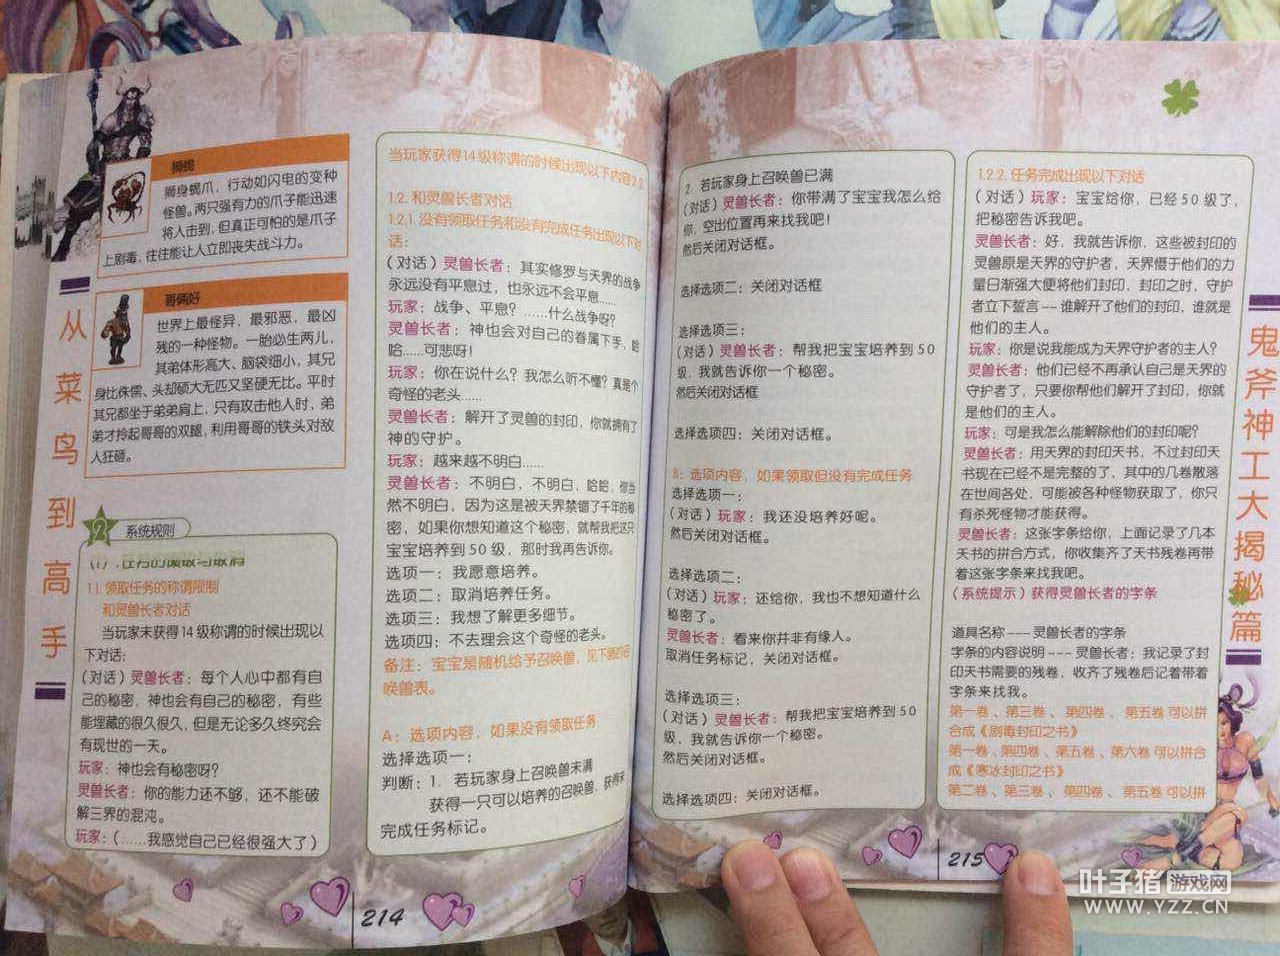 从菜鸟到高手
狮蝎
狮身蝎爪，行动如闪电的变种
怪兽。两只强有力的爪子能迅速
将人击到，但真正可怕的是爪子
上剧毒，往往能让人立即丧失战斗力。
哥俩好
世界上最怪异，最邪恶，最凶
残的一种怪物。一胎必生两儿，
其弟体形高大、脑袋细小，其兄
身比侏儒、头却硕大无匹又坚硬无比。平时
其兄都坐于弟弟肩上，只有攻击他人时，弟
弟才拎起哥哥的双腿，利用哥哥的铁头对敌
人狂砸。
2 系统规则
(1)．任务的领取与取消
1.1. 领取任务的称谓限制
和灵兽长者对话
当玩家未获得14级称谓的时候出现以
下对话：
（对话）灵兽长者：每个人心中都有自
己的秘密，神也会有自己的秘密，有些
能埋藏的很久很久，但是无论多久终究会
有现世的一天。
玩家：神也会有秘密呀？
灵兽长者：你的能力还不够，还不能破
解三界的混沌。
玩家：（......我感觉自己已经很强大了）
当玩家获得14级称谓的时候出现以下内容2.2
1.2. 和灵兽长者对话
1.2.1. 没有领取任务和没有完成任务出现以下对
话：
（对话）灵兽长者：其实修罗与天界的战争
永远没有平息过，也永远不会平息......
玩家：战争、平息？......什么战争呀？
灵兽长者：神也会对自己的眷属下手，哈
哈......可悲呀！
玩家：你在说什么？我怎么听不懂？真是个
奇怪的老头......
灵兽长者：解开了灵兽的封印，你就拥有了
神的守护。
玩家：越来越不明白......
灵兽长者：不明白，不明白，哈哈，你当
然不明白，因为这是被天界禁锢了千年的秘
密，如果你想知道这个秘密，就帮我把这只
宝宝培养到50级，那时我再告诉你。
选项一：我愿意培养。
选项二：取消培养任务。
选项三：我想了解更多细节。
选项四：不去理会这个奇怪的老头。
备注：宝宝是随机给予召唤兽，见下面的召
唤兽表。
A：选项内容，如果没有领取任务
选择选项一：
判断：1. 若玩家身上召唤兽未满
获得一只可以培养的召唤兽，获得未
完成任务标记。
214
2. 若玩家身上召唤兽已满
（对话）灵兽长者：你带满了宝宝我怎么给
你，空出位置再来找我吧！
然后关闭对话框。
选择选项二：关闭对话框
选择选项三：
（对话）灵兽长者：帮我把宝宝培养到50
级，我就告诉你一个秘密。
然后关闭对话框
选择选项四：关闭对话框。
B：选项内容，如果领取但没有完成任务
选择选项一：
（对话）玩家：我还没培养好呢。
然后关闭对话框。
选择选项二：
（对话）玩家：还给你，我也不想知道什么
秘密了。
灵兽长者：看来你并非有缘人。
取消任务标记，关闭对话框。
选择选项三：
（对话）灵兽长者：帮我把宝宝培养到50
级，我就告诉你一个秘密。
然后关闭对话框。
选择选项四：关闭对话框。
1.2.2. 任务完成出现以下对话
（对话）玩家：宝宝给你，已经50级了，
把秘密告诉我吧。
灵兽长者：好，我就告诉你，这些被封印的
灵兽原是天界的守护者，天界慑于他们的力
量日渐强大便将他们封印，封印之时，守护
者立下誓言--谁解开了他们的封印，谁就是
他们的主人。
玩家：你是说我能成为天界守护者的主人？
灵兽长者：他们已经不再承认自己是天界的
守护者了，只要你帮他们解开了封印，你就
是他们的主人。
玩家：可是我怎么能解除他们的封印呢？
灵兽长者：用天界的封印天书，不过封印天
书现在已经不是完整的了，其中的几卷散落
在世间各处，可能被各种怪物获取了，你只
有杀死怪物才能获得。
灵兽长者：这张字条给你，上面记录了几本
天书的拼合方式，你收集齐了天书残卷再带
着这张字条来找我吧。
（系统提示）获得灵兽长者的字条
道具名称---灵兽长者的字条
字条的内容说明---灵兽长者：我记录了封
印天书需要的残卷，收齐了残卷后记着带着
字条来找我。
第一卷、第三卷、第四卷、第五卷可以拼
合成《剧毒封印之书》
第一卷、第四卷、第五卷、第六卷可以拼合
成《寒冰封印之书》
第二卷、第三卷、第四卷、第五卷可以拼
215
鬼斧神工大揭秘篇
叶子猪 游戏网
WWW.YZZ.CN